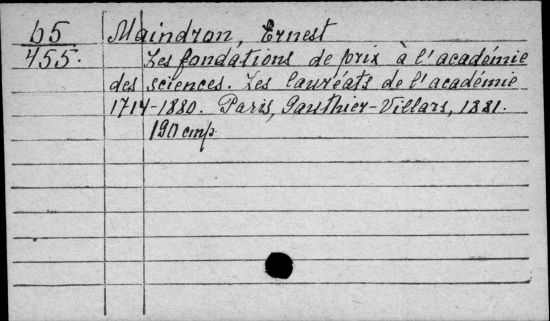 65 Maindron, Ernest
455. Les fondations de prix à l'académie
des sciences. Les lauréats de l'académie
1714-1880. Paris, Gauthier-Villars, 1881.
190 стр.